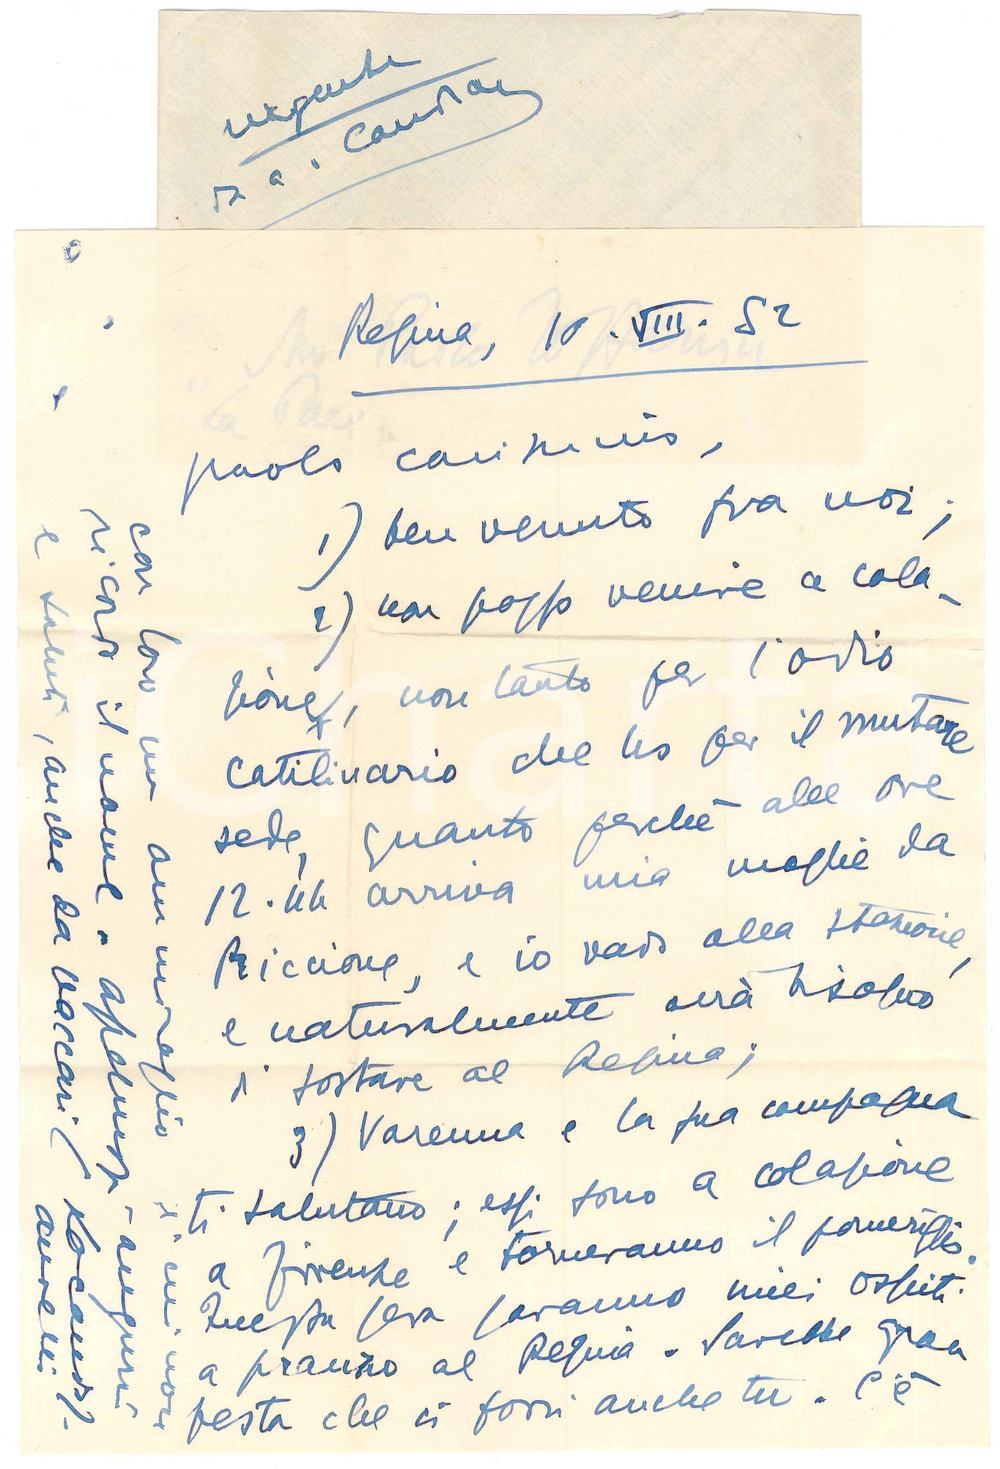 urgente
Regina, 10. VIII. 52
paolo carissimo,
1) ben venuto fra noi;
2) non posso venire a cola-
zione, non tanto per l'odio
catilinario che ho per il mutare
sede, quanto perchè alle ore
12.44 arriva mia moglie da
Riccione, e io vado alla stazione,
e naturalmente avrà bisogno
di sostare al Regina;
3) Varenna e la sua compagna
ti salutano; essi sono a colazione
a Firenze e torneranno il pomeriggio.
Questa sera saranno miei ospiti
a pranzo al Regina. Sarebbe gran
festa che ci fossi anche tu. C'è
con loro un ammiraglio di cui non
ricordo il nome. auguri
e saluti, anche da Vaccari